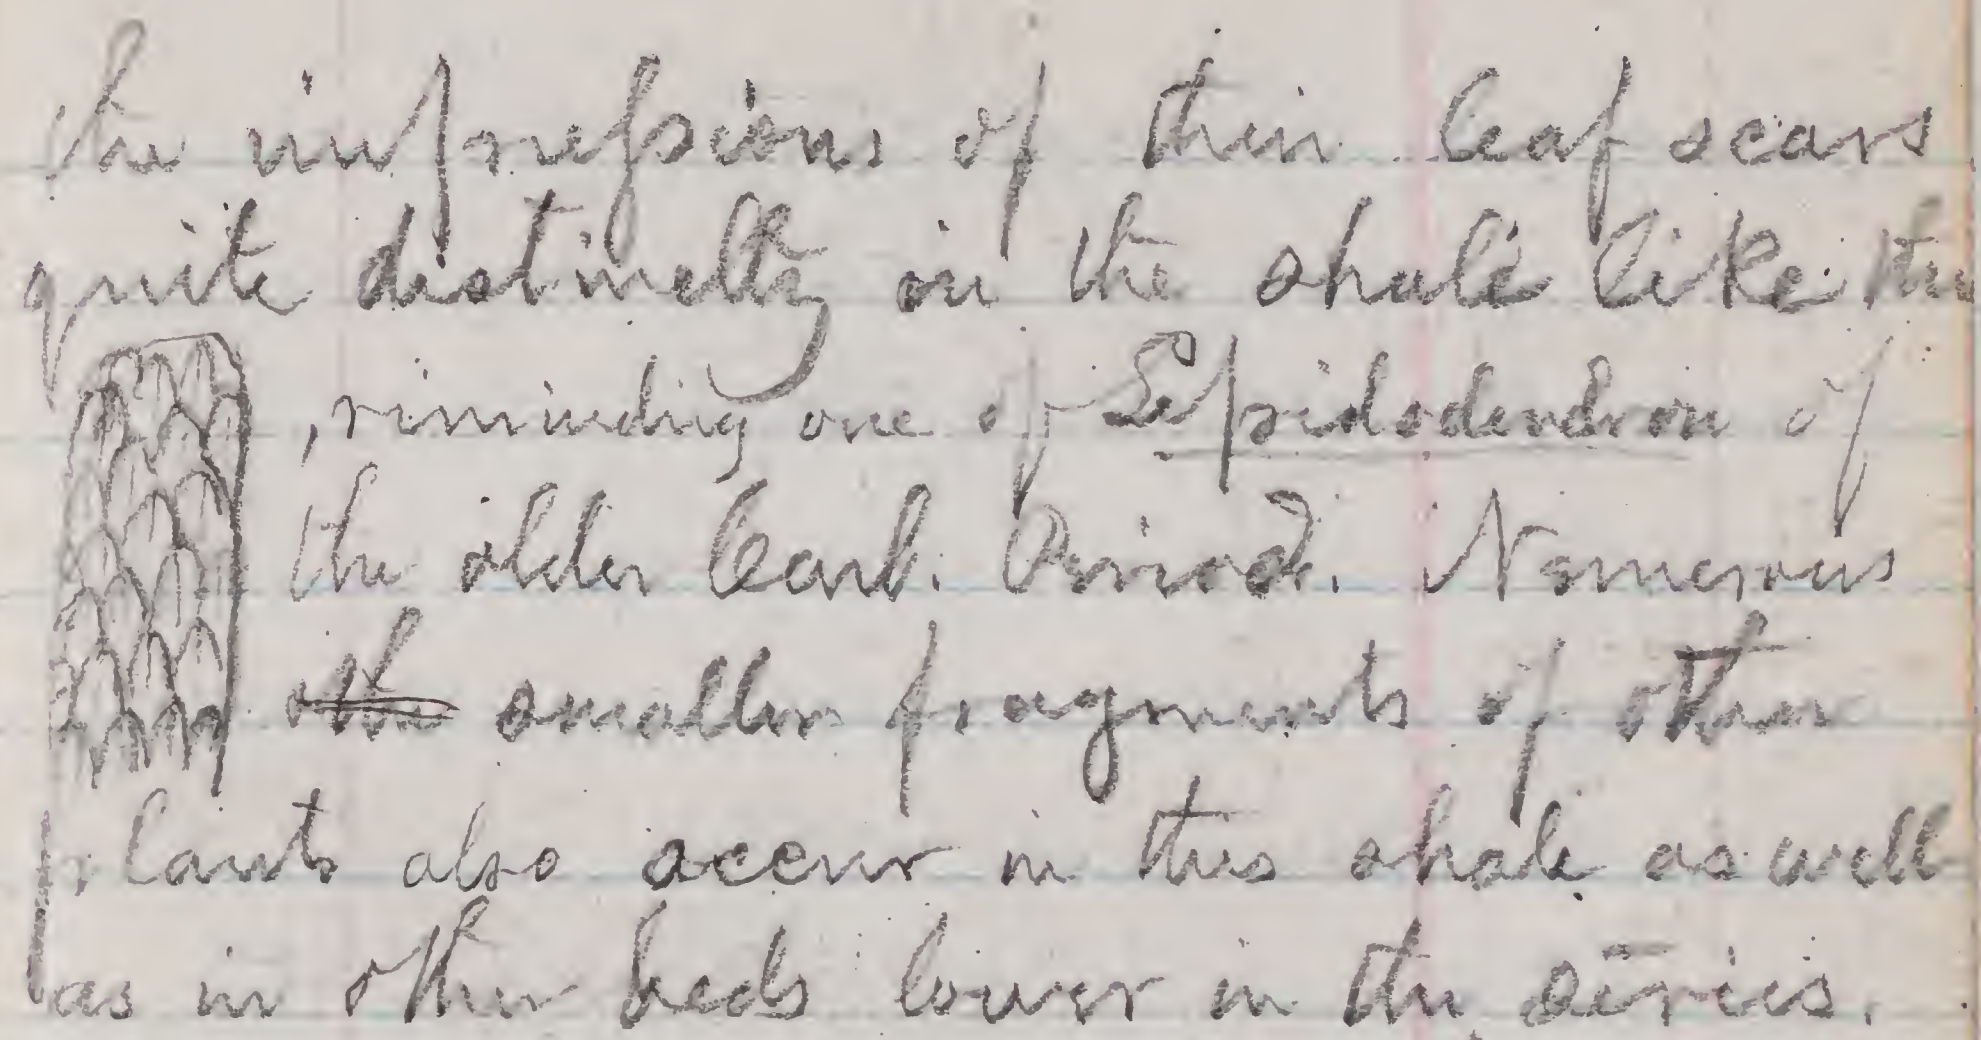 the impressions of their leaf scars
quite distinctly in the shale like this
, reminding one of Lepidodendron of
the older Carb. Period. Numerous
smaller fragments of other
plants also occur in this shale as well
as in other beds lower in the series.